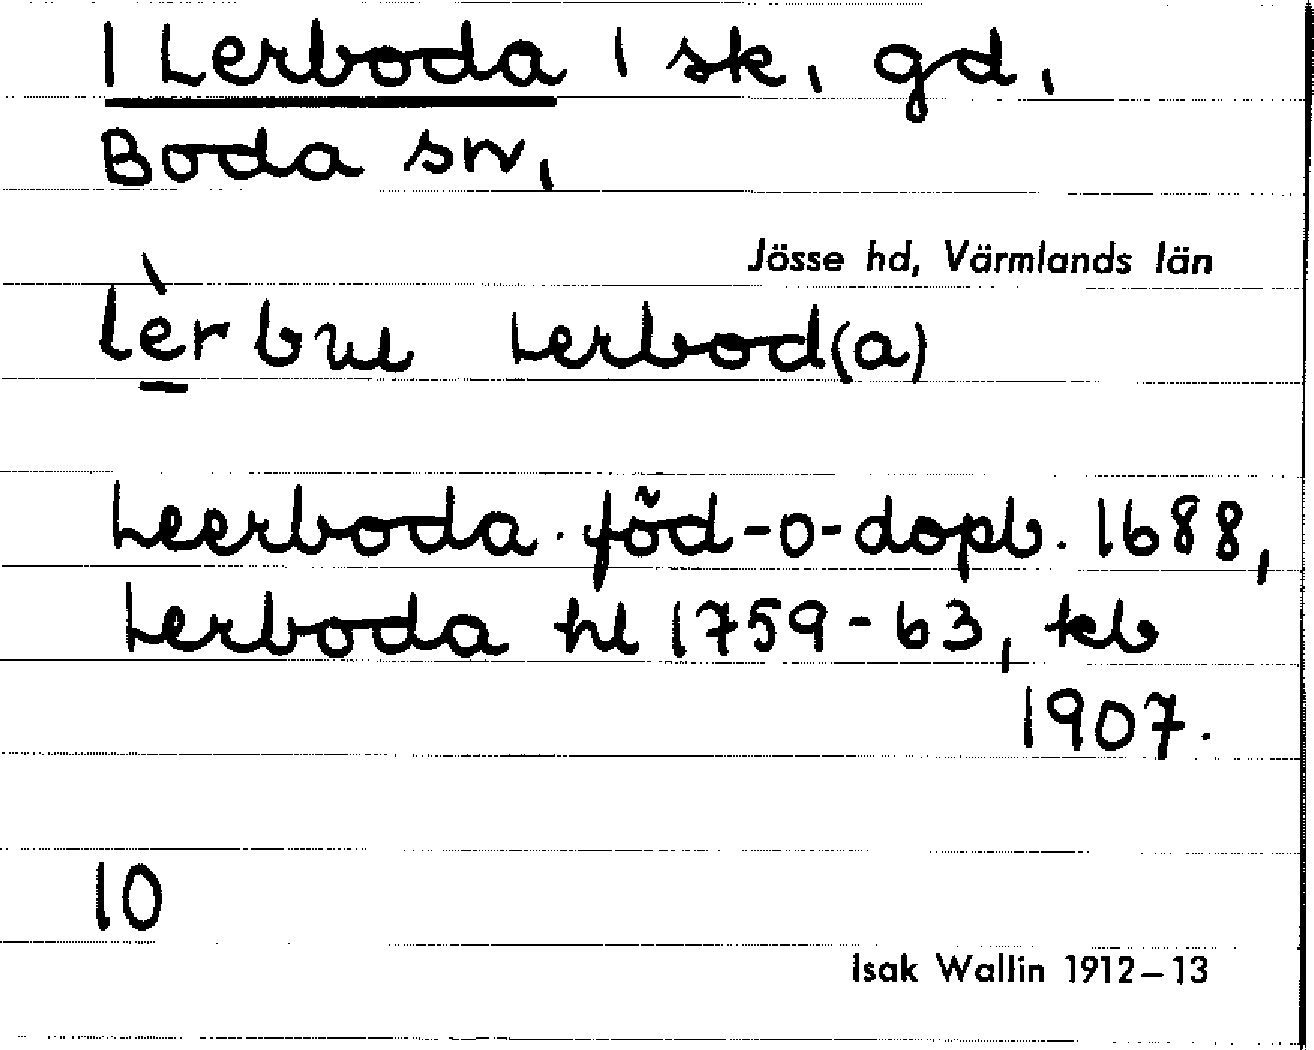 1 Lerboda 1 sk, gd,
Boda sn,
Jösse hd, Värmlands län
lèr Lerbod(a)
Leerboda. föd-o-dopb. 1688,
Lerboda hl 1759-63, kb
1907.
10
Isak Wallin 1912–13